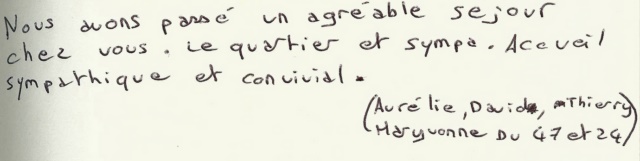 Nous avons passé un agréable sejour
chez vous. Le quartier et sympa. Accueil
sympathique et convivial.
(Aurélie, David, Thierry
Maryvonne Du 47 et 24)